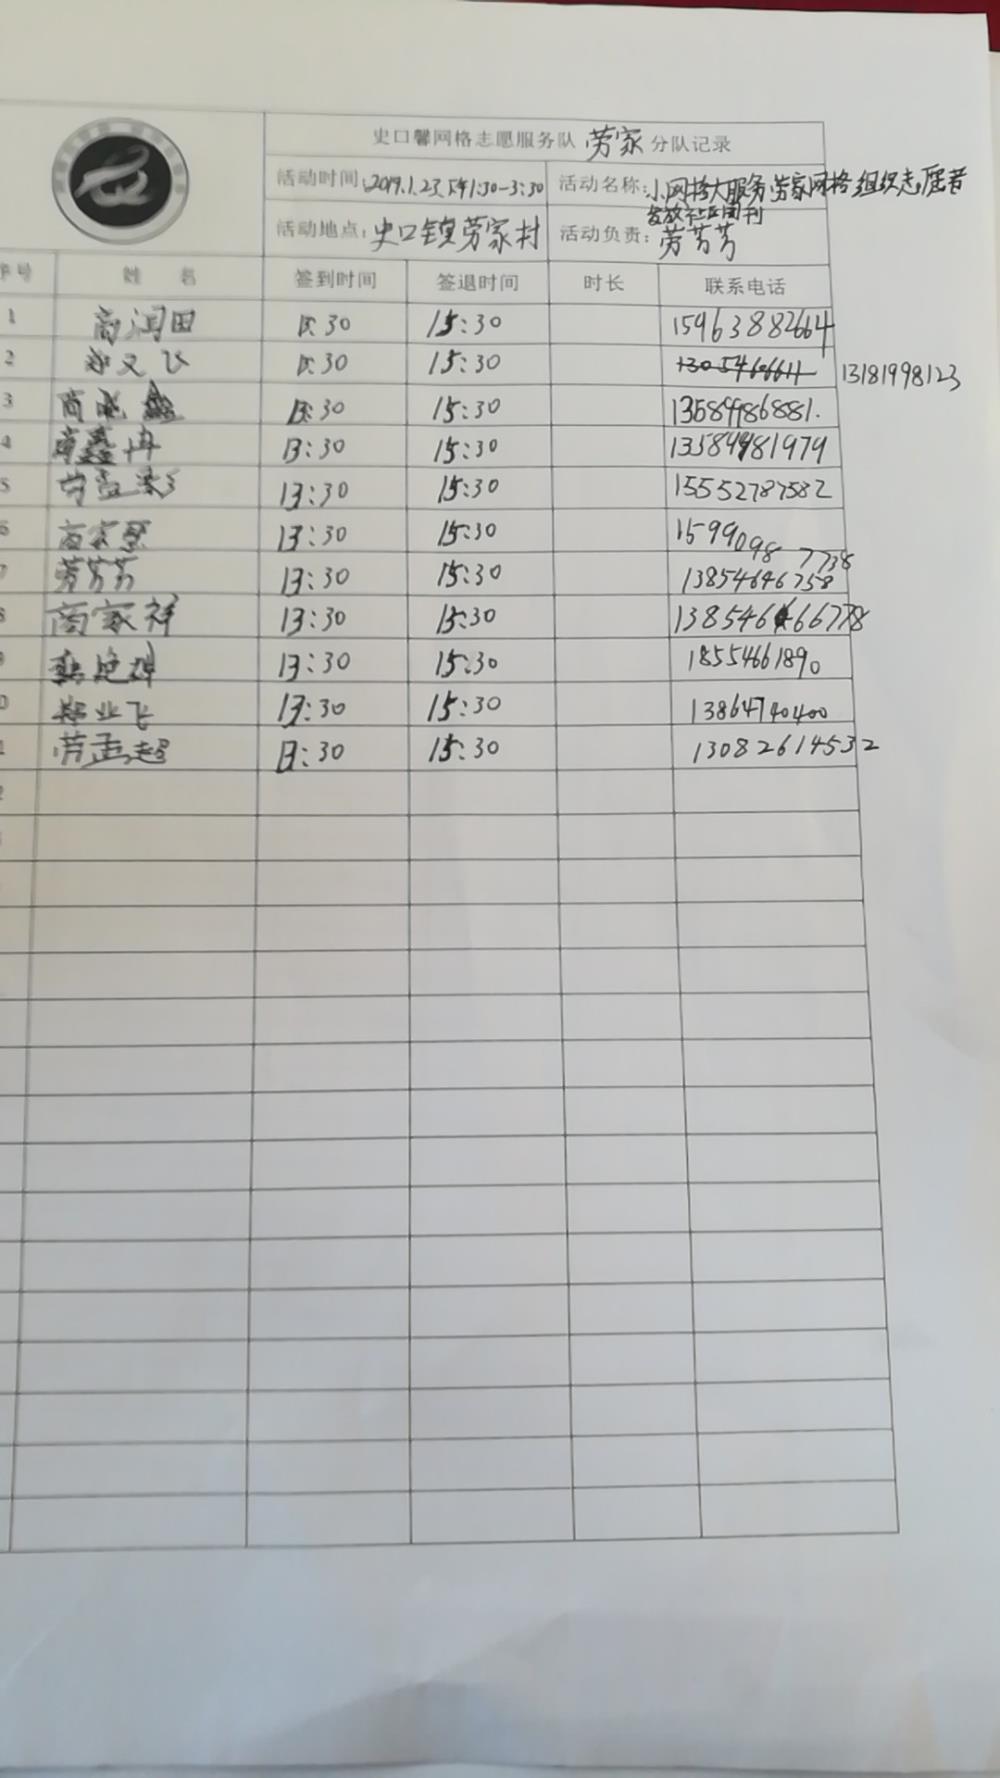 史口馨网格志愿服务队 劳家 分队记录
活动时间:2019.1.23.下午1:30-3:30 活动名称:小网格大服务劳家网格组织志愿者
发放社区周刊
活动地点:史口镇劳家村 活动负责:劳芳芳
序号 姓 名 签到时间 签退时间 时长 联系电话
1 商润田 13:30 15:30 15963882664
2 飞 13:30 15:30 13181998123
3 商 鑫 13:30 15:30 13589986881.
4 商鑫冉 13:30 15:30
5 13:30 15:30 15552787582
6 商家 13:30 15:30 15990987738
7 劳芳芳 13:30 15:30 13854646758
8 商家祥 13:30 15:30
9 13:30 15:30 18554661890
10 郑业飞 13:30 15:30 13864740400
11 劳孟超 13:30 15:30 13082614532